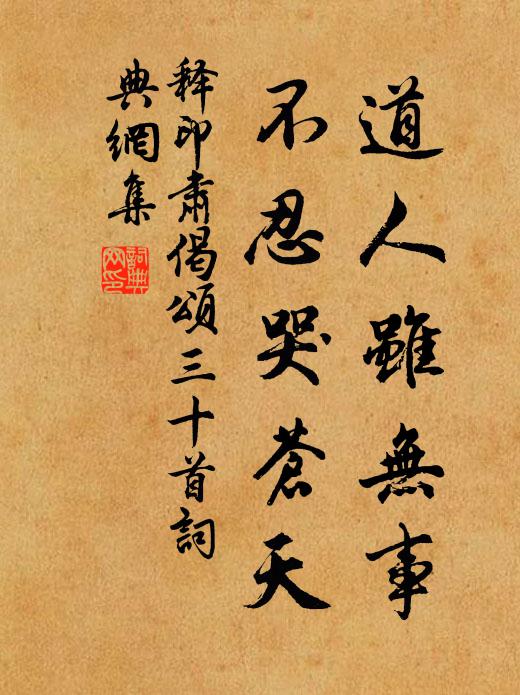 道人雖無事
不忍哭蒼天
釋印肅偈頌三十首詞
典網集
詞典
网印